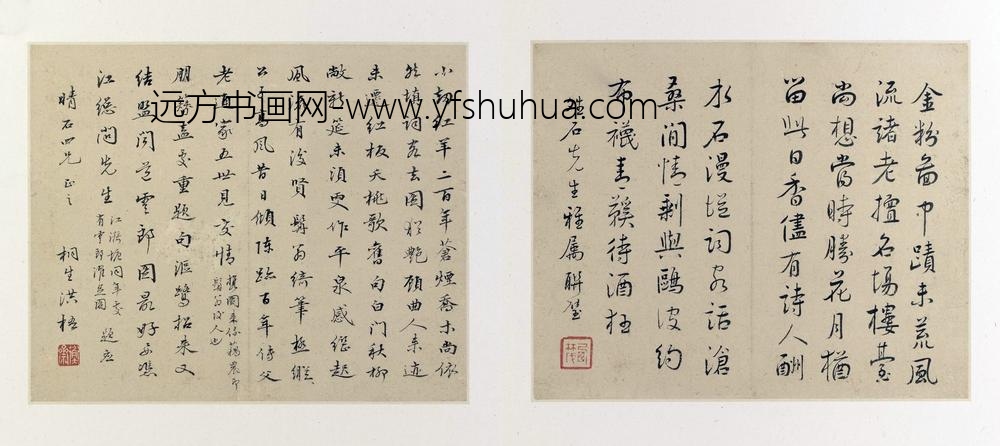 金粉啚巾蹟未荒風
流諸老擅名場樓臺
尚想當時勝花月猶
留此日香儘有詩人酬
水石漫從詞客話滄
桑澗情剩與鷗波約
布襪青鞵待酒狂
石先生雅屬 聯璧
小 紅羊二百年蒼煙喬木尚依
於填詞客去圖猶艷顧曲人來迹
未遷紅板天桃歌舊句白門秋柳
敞新筵未須更作平泉感繼起
風 有後賢 翁綺筆極縱
公 高風昔日傾陳跡百年待父
老道家五世見交情
朋 孟交重題句鷗鷺招來又
結盟聞道雲郎圖最好為
江總問先生
題应
晴石四兄正之 桐生洪梧
远方书画网-www.yfshuhua.com